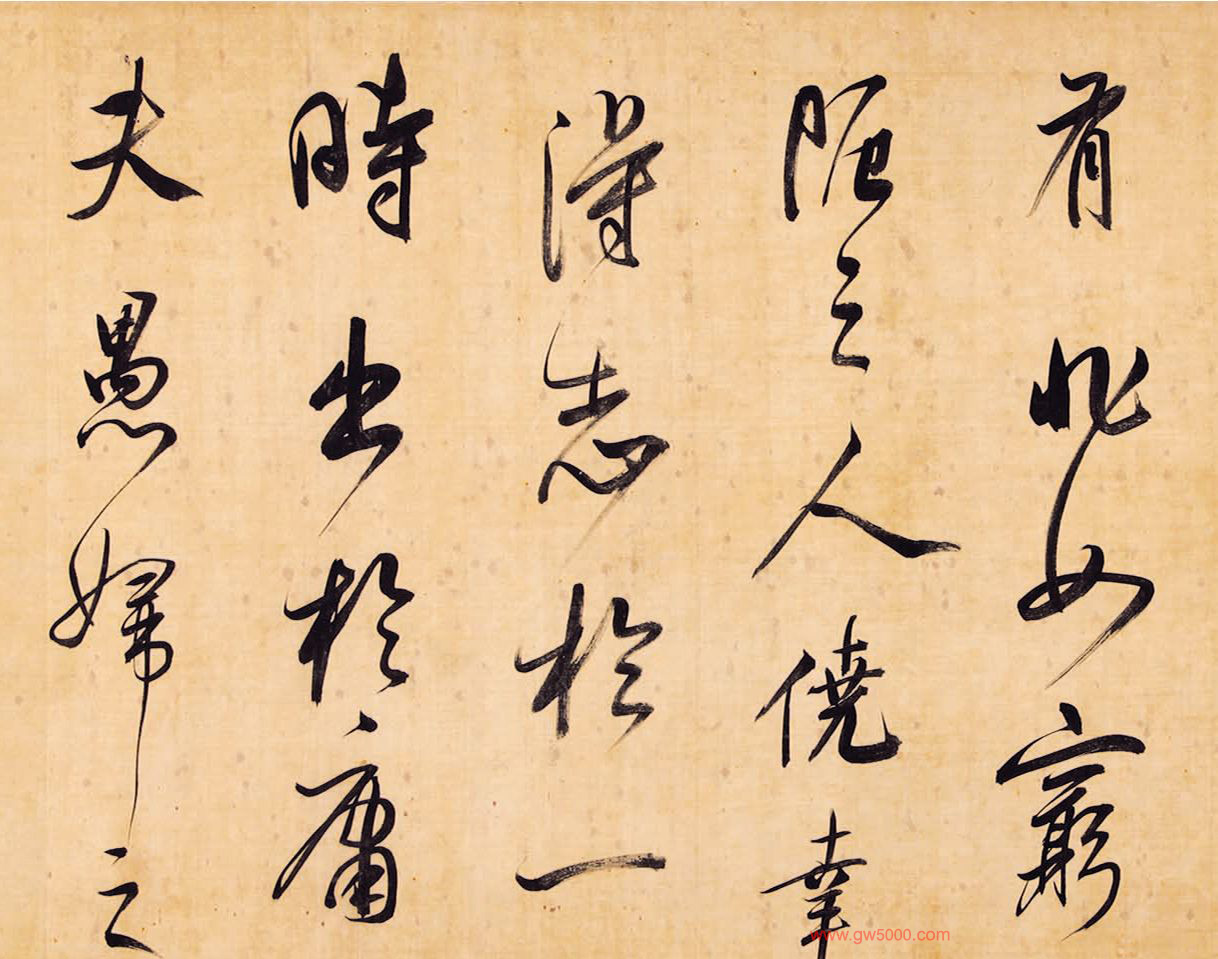 有非如窮
阨之人僥幸
得志於一
時出於庸
夫愚婦之
www.gw5000.com